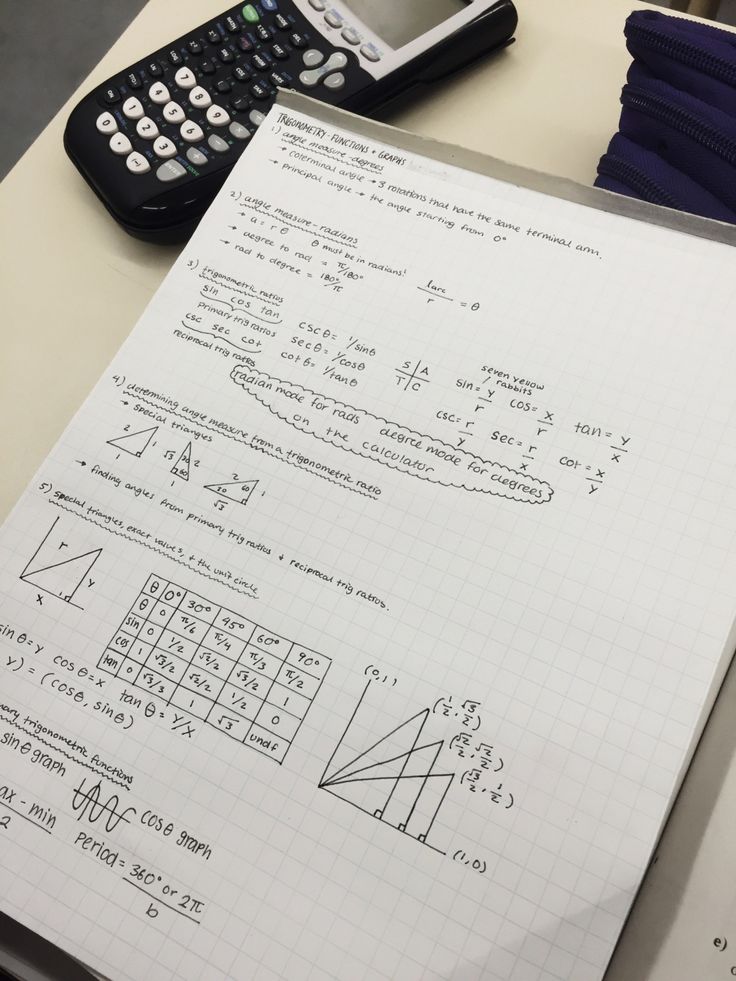 TRIGONOMETRY - FUNCTIONS + GRAPHS
1) angle measure - degrees
→ coterminal angle → 3 rotations that have the same terminal arm.
→ principal angle → the angle starting from 0°
2) angle measure - radians
→ a = r θ θ must be in radians!
→ degree to rad = π/180°
→ rad to degree = 180°/π
larc/r = θ
3) trigonometric ratios
sin cos tan
primary trig ratios
csc sec cot
reciprocal trig ratios
csc θ = 1/sinθ
sec θ = 1/cosθ
cot θ = 1/tanθ
S | A
T | C
seven yellow / rabbits
sin = y/r cos = x/r tan = y/x
csc = r/y sec = r/x cot = x/y
radian mode for rads degree mode for degrees
on the calculator
4) determining angle measure from a trigonometric ratio
→ special triangles
2 1 1
√3 30 2 60 1
2 60 1 30 √3
→ finding angles from primary trig ratios + reciprocal trig ratios.
5) special triangles, exact values, + the unit circle
r y x
θ 0° 30° 45° 60° 90°
θ 0 π/6 π/4 π/3 π/2
sin 0 1/2 √2/2 √3/2 1
cos 1 √3/2 √2/2 1/2 0
tan 0 √3/3 1 √3 undf
sin θ = y cos θ = x tan θ = y/x
y) = (cos θ, sin θ)
(0,1)
(1/2, √3/2)
(√2/2, √2/2)
(√3/2, 1/2)
(1,0)
mary trigonometric functions
sin θ graph
cos θ graph
ax - min
2
Period = 360° or 2π
b
e)